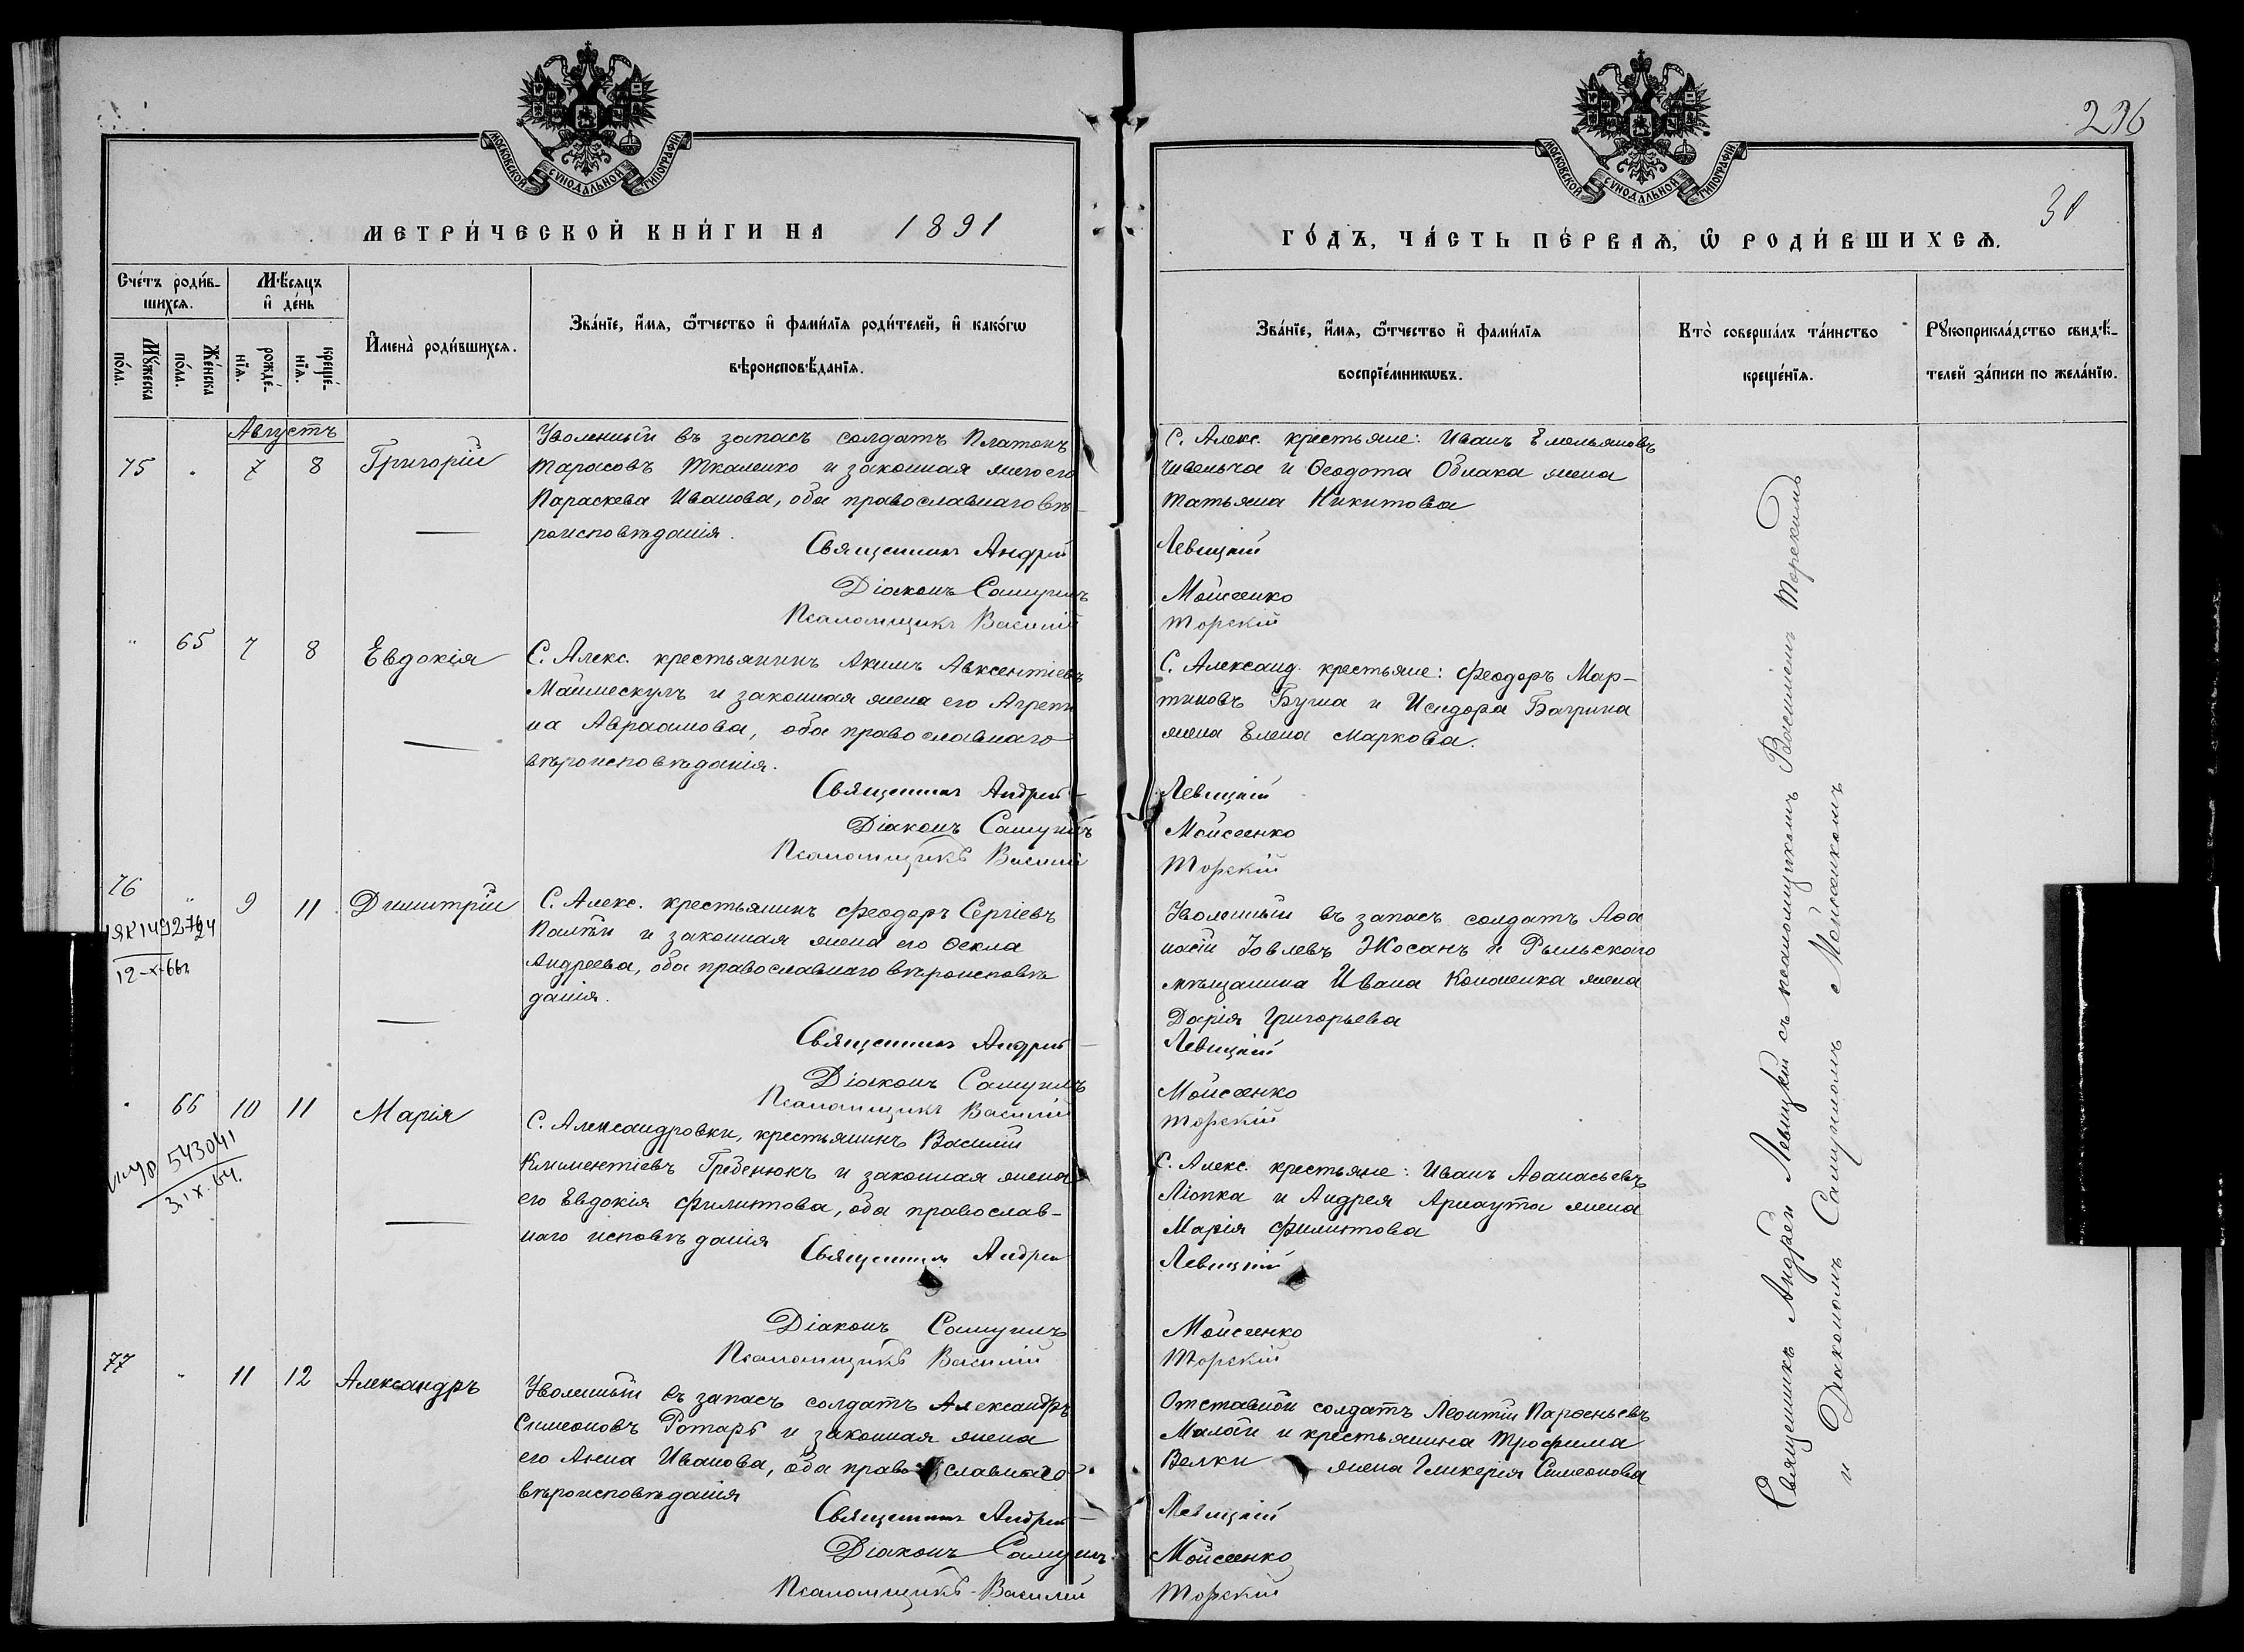 МОСКОВСКОЙ СѴНОДАЛЬНОЙ ТИПОГРАФІИ
МЕТРИ́ЧЕСКОЙ КНИ́ГИ НА 1891
Сче́тъ роди́в-
шихсѧ.
Мѣ́сѧцъ
и҆ де́нь
Мꙋ́жеска
по́ла.
Же́нска
по́ла.
рожде́-
нїѧ.
креще́-
нїѧ.
И҆мена̀ роди́вшихсѧ.
Зва́нїе, и҆́мѧ, ѻ҆́тчество и҆ фами́лїѧ роди́телей, и҆ како́гѡ
вѣроисповѣ́данїѧ.
Августъ
75 " 7 8 Григорій
Уволенный въ запасъ солдатъ Платонъ
Тарасовъ Ткаленко и законная жена его
Параскева Иванова, оба православнаго вѣ-
роисповѣданія.
Священникъ Андрей
Діаконъ Самуилъ
Псаломщикъ Василій
" 65 7 8 Евдокія
С. Алекс. крестьянинъ Акимъ Авксентіевъ
Маймескулъ и законная жена его Агрепи
на Авраамова, оба православнаго
вѣроисповѣданія.
Священникъ Андрей
Діаконъ Самуилъ
Псаломщикъ Василій
76 " 9 11 Димитрій
12-X-66г.
С. Алекс. крестьянинъ Феодоръ Сергіевъ
Палій и законная жена его Ѳекла
Андреева, оба православнаго вѣроисповѣ
данія.
Священникъ Андрей
Діаконъ Самуилъ
Псаломщикъ Василій
" 66 10 11 Марія
543041
3.IX.64.
С. Александровки, крестьянинъ Василій
Климентіевъ Гребенюкъ и законная жена
его Евдокія Филиппова, оба православ-
наго исповѣданія
Священникъ Андрей
Діаконъ Самуилъ
Псаломщикъ Василій
77 " 11 12 Александръ
Уволенный въ запасъ солдатъ Александръ
Симеоновъ Ротарь и законная жена
его Анна Иванова, оба православнаго
вѣроисповѣданія
Священникъ Андрей
Діаконъ Самуилъ
Псаломщикъ Василій
МОСКОВСКОЙ СѴНОДАЛЬНОЙ ТИПОГРАФІИ
30
ГО́ДЪ, ЧА́СТЬ ПЕ́РВАѦ, Ѡ҆ РОДИ́ВШИХСѦ.
Зва́нїе, и҆́мѧ, ѻ҆́тчество и҆ фами́лїѧ
воспрїе́мникѡвъ.
Кто̀ соверша́лъ та́инство
креще́нїѧ.
Рꙋкоприкла́дство свидѣ́-
телей за́писи по жела́нїю.
С. Алекс. крестьяне: Иванъ Емельяновъ
и Ѳеодота Облака жена
Татьяна Никитова
Левицкій
Мойсеенко
Торскій
С. Александ. крестьяне: Феодоръ Мар-
тиновъ Буша и Исидора Багрина
жена Елена Маркова.
Левицкій
Мойсеенко
Торскій
Уволенный въ запасъ солдатъ Аѳа
насій Іовлевъ Жосанъ и Рыльскаго
мѣщанина Ивана Кононенка жена
Дарія Григорьева
Левицкій
Мойсеенко
Торскій
С. Алекс. крестьяне: Иванъ Аѳанасьевъ
Ліопка и Андрея Арнаута жена
Марія Филиппова
Левицкій
Мойсеенко
Торскій
Отставной солдатъ Леонтій Парѳеньевъ
Малай и крестьянина Трофима
Велки жена Гликерія Симеонова
Левицкій
Мойсеенко
Торскій
Священникъ Андрей Левицкій съ псаломщикомъ Василіемъ Торскимъ
и Діакономъ Самуиломъ Мойсеенкомъ